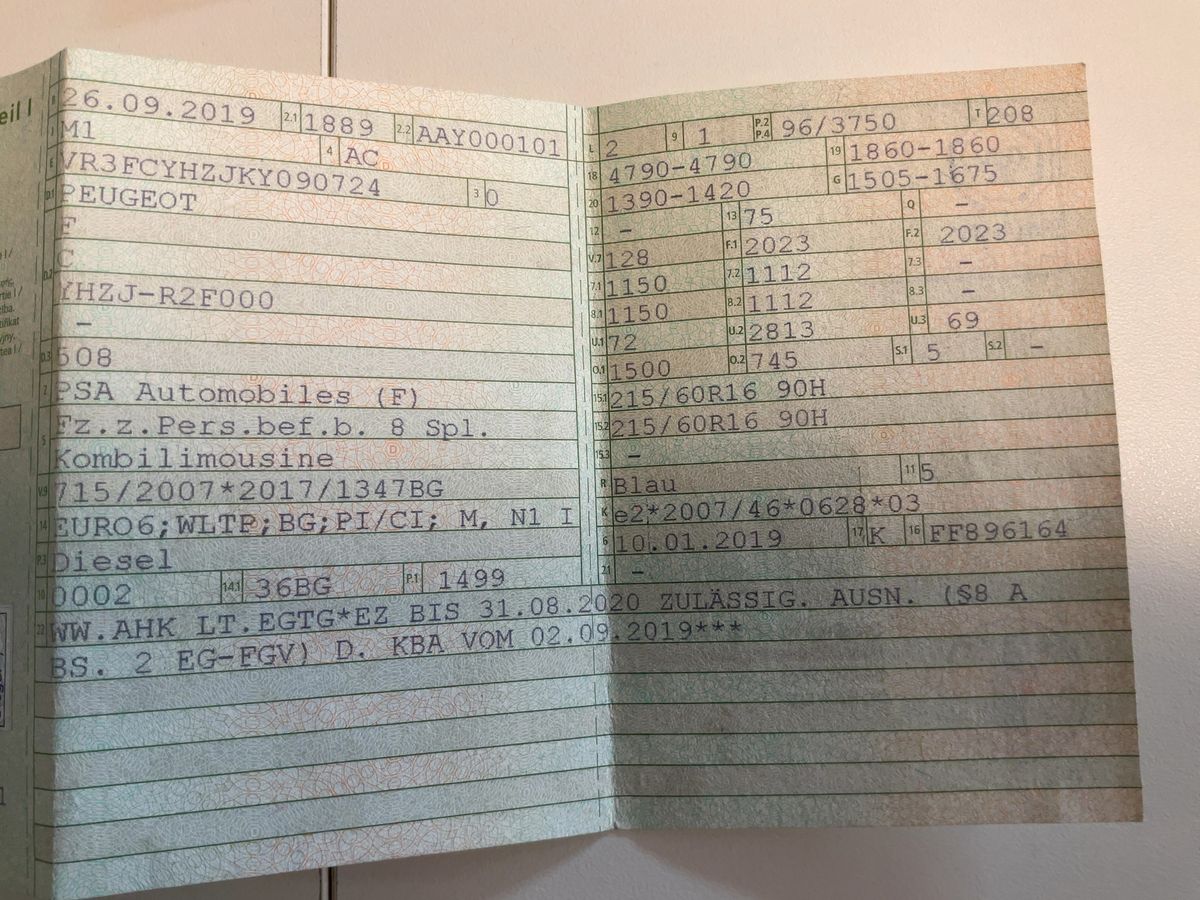 eil I
B 26.09.2019 2.1 1889 2.2 AAY000101
J M1 4 AC
E VR3FCYHZJKY090724 3 0
D.1 PEUGEOT
F
C
D.2 YHZJ-R2F000
-
D.3 508
2 PSA Automobiles (F)
5 Fz.z.Pers.bef.b. 8 Spl.
Kombilimousine
V.9 715/2007*2017/1347BG
14 EURO6;WLTP;BG;PI/CI; M, N1 I
P.3 Diesel
10 0002 14.1 36BG P.1 1499
L 2 9 1 P.2 P.4 96/3750 T 208
18 4790-4790 19 1860-1860
20 1390-1420 G 1505-1675
12 - 13 75 Q -
V.7 128 F.1 2023 F.2 2023
7.1 1150 7.2 1112 7.3 -
8.1 1150 8.2 1112 8.3 -
U.1 72 U.2 2813 U.3 69
O.1 1500 O.2 745 S.1 5 S.2 -
15.1 215/60R16 90H
15.2 215/60R16 90H
15.3 -
R Blau 11 5
K e2*2007/46*0628*03
6 10.01.2019 17 K 16 FF896164
21 -
22 WW.AHK LT.EGTG*EZ BIS 31.08.2020 ZULÄSSIG. AUSN. (§8 A
BS. 2 EG-FGV) D. KBA VOM 02.09.2019***